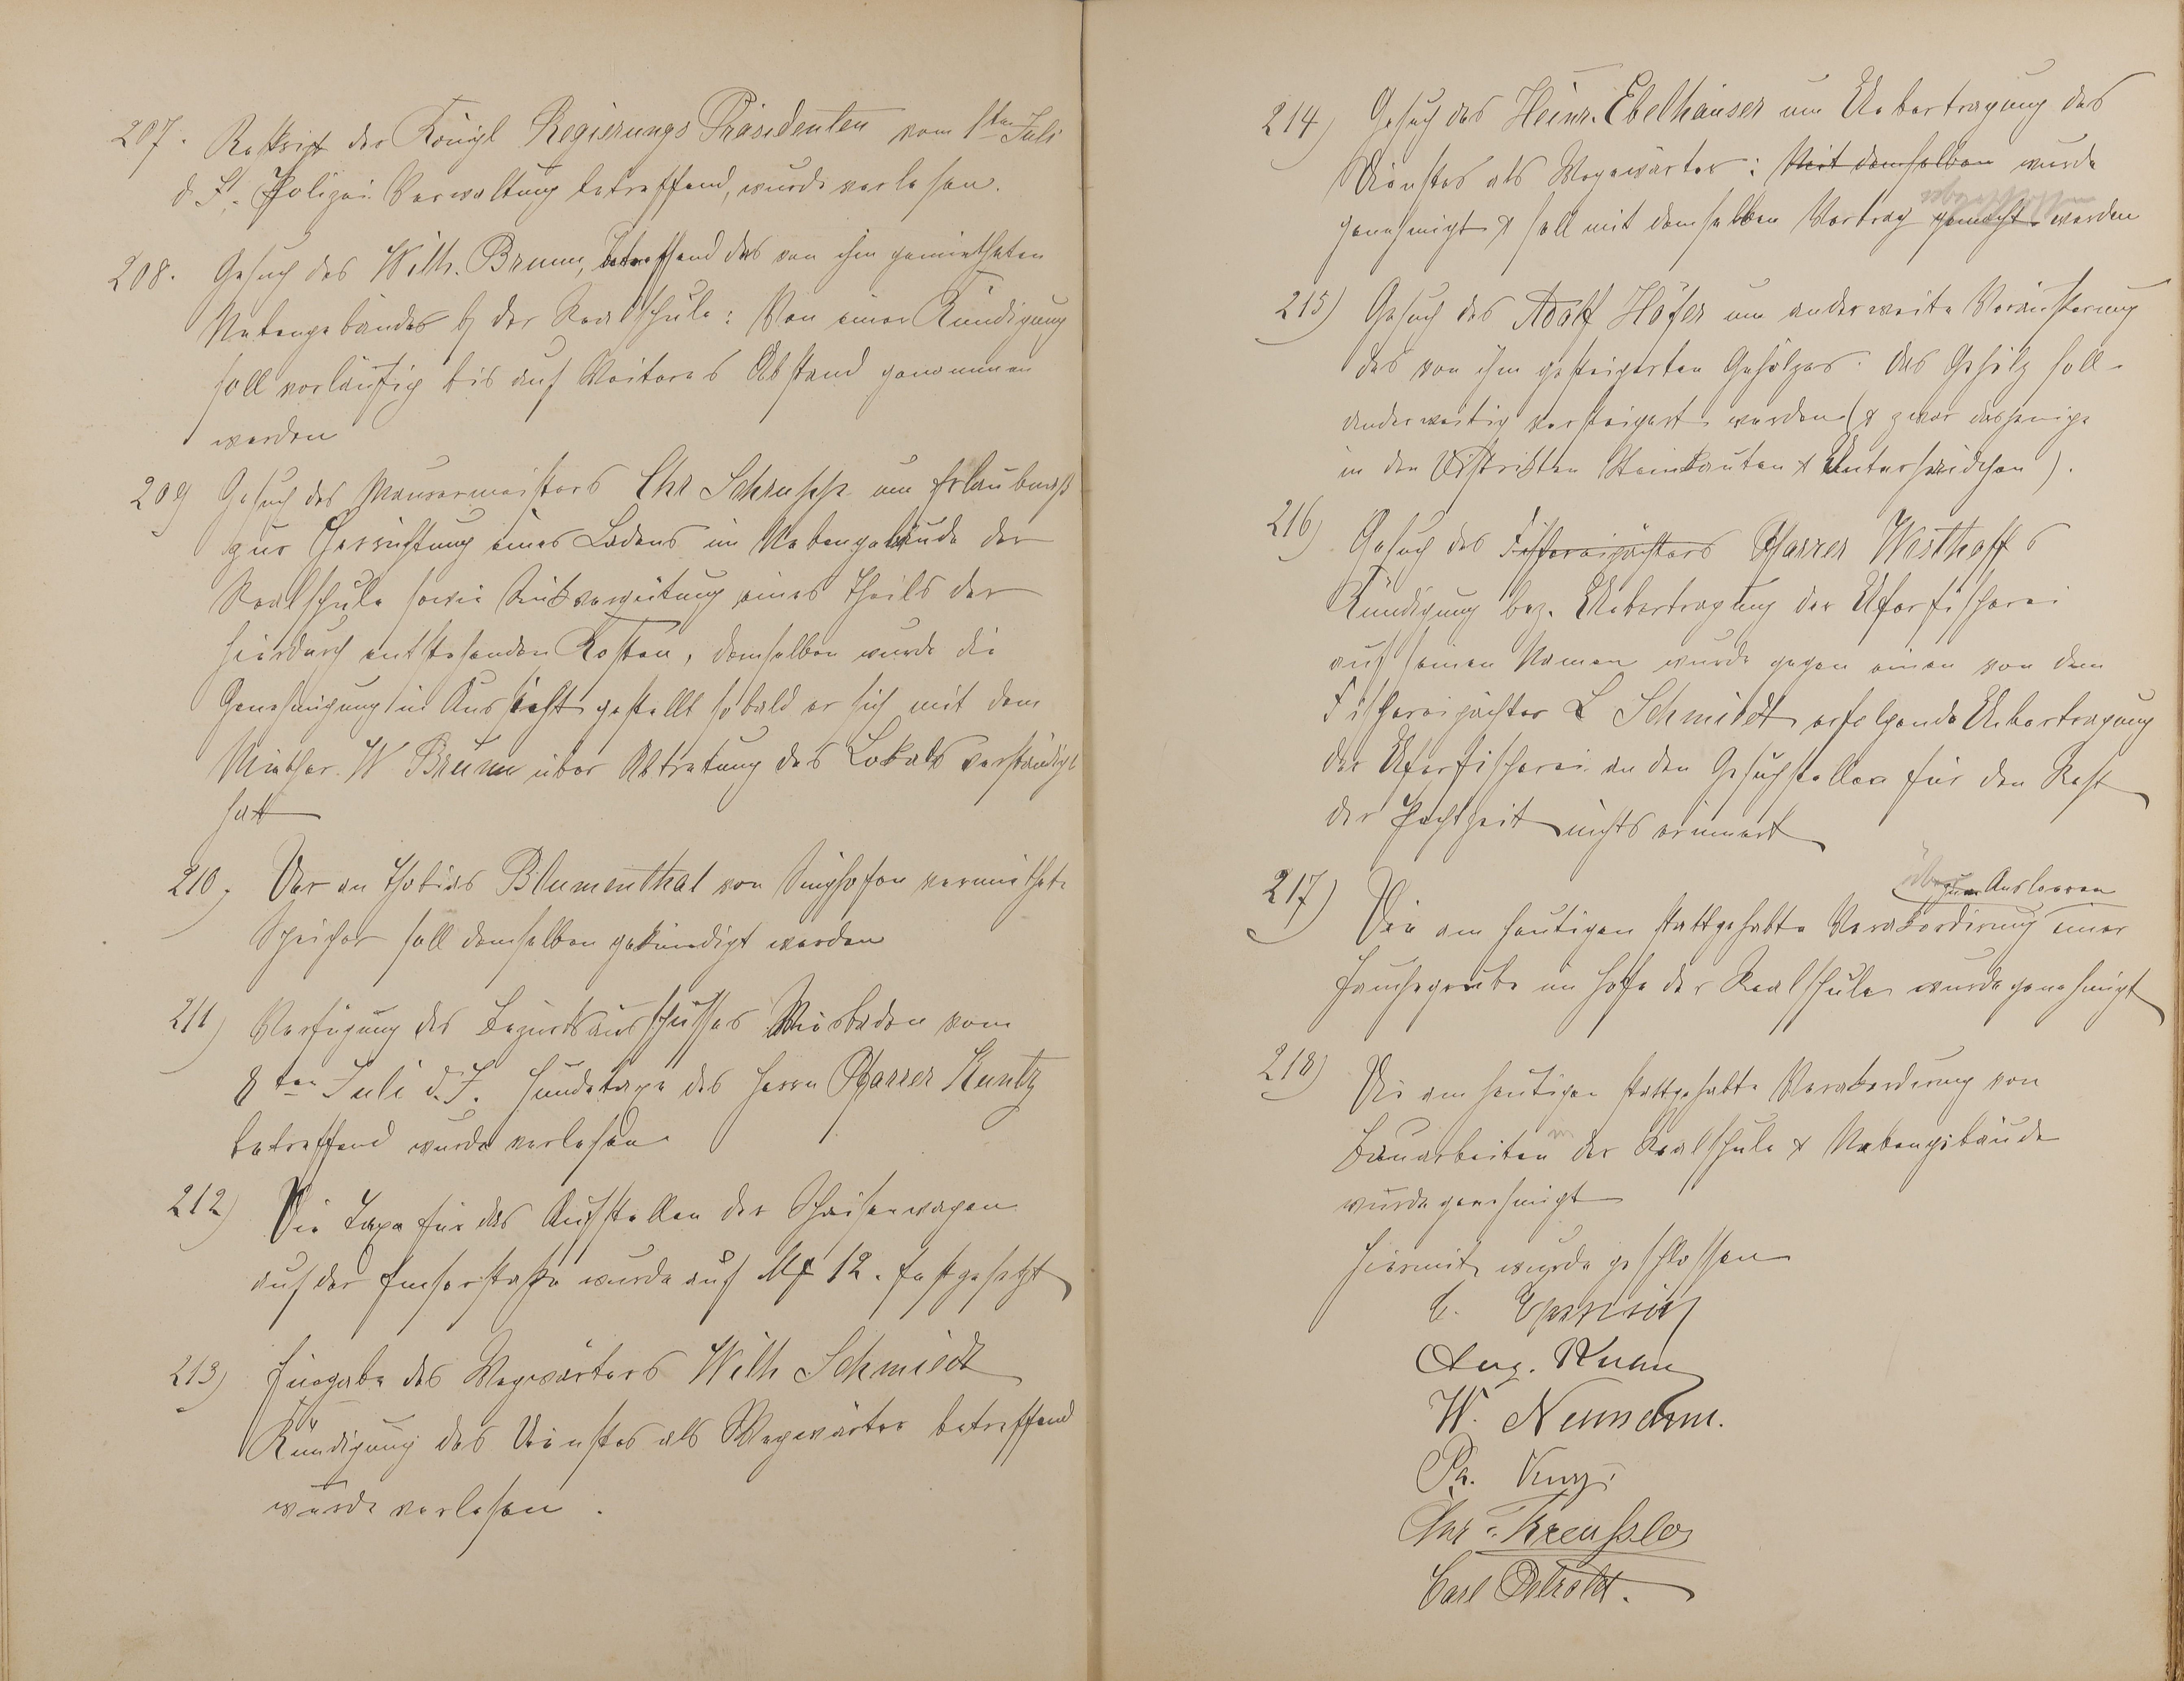 207. Reskript des Königl Regierungs Präsidenten vom 1ten Juli
d. J. Polizei Verwaltung betreffend, wurde verlesen.
208. Gesuch des Wilh. Brumm, betreffend das von ihm gemietheten
Nebengebäudes b/ der Realschule: Von einer Kündigung
soll vorläufig bis auf Weiteres Abstand genommen
werden
209 Gesuch des Maurermeisters Chr Schrupp um Erlaubniß
zur Herrichtung eines Ladens im Nebengebäude der
Realschule sowie Rückvergütung eines Theils der
hierdurch entstehenden Kosten, demselben wurde die
Genehmigung in Aussicht gestellt sobald er sich mit dem
Miether W Brumm über Abtretung des Lokals verständigt
hat
210. Der an Thobias Blumenthal von Singhofen vermiethete
Speicher soll demselben gekündigt werden
211) Verfügung des Bezirksausschusses Wiesbaden vom
8ten Juli d. J. Hundetaxe des Herrn Pfarrer Kuntz
betreffend wurde verlesen
212) Die Taxe für das Aufstellen der Scheiserwagen
auf der Emserstraße wurde auf M 12. festgesetzt
213) Eingabe des Wegewärters Wilh Schmidt
Kündigung des Dienstes als Wegewärter betreffend
wurde verlesen.
214) Gesuch des Heinr. Ebelhäuser um Uebertragung des
Dienstes als Wegewärter: Mit demselben wurde
genehmigt & soll mit demselben Vertrag gemacht werden
215) Gesuch des Adolf Höfer um anderweite Veräußerung
des von ihm gesteigerten Gehölzes. Das Gehölz soll
anderweitig versteigert werden (& zwar dasjenige
in den Distrikten Steinkauten & Unterhaidchen).
216) Gesuch des Fischereipächters Pfarrer Westhoff s
Kündigung bez. Uebertragung der Uferfischerei
auf seinen Namen wurde gegen einen von dem
Fischereipächter L Schmidt erfolgende Uebertragung
der Uferfischerei an den Gesuchsteller für den Rest
der Pachtzeit nichts erinnert
über zum Ausleeren
217) Die am heutigen stattgehabte Verakordirung einer
Jauchegrube im Hofe der Realschule wurde genehmigt
218) Die am heutigen stattgehabte Verakordirung von
Bauarbeiten in der Realschule & Nebengebäude
wurde genehmigt
Hiermit wurde geschlossen
Aug.
W. Neumann.
Ph. Kurz
Chr. Kreußler
Carl